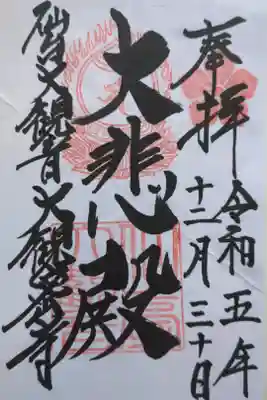 奉拝
令和五年
十二月三十日
大悲殿
仙台大観音大観密寺